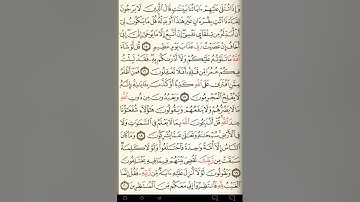 وَإِذَا تُتْلَىٰ عَلَيْهِمْ ءَايَاتُنَا بَيِّنَٰتٍ قَالَ ٱلَّذِينَ لَا يَرْجُونَ
لِقَآءَنَا ٱئْتِ بِقُرْءَانٍ غَيْرِ هَٰذَآ أَوْ بَدِّلْهُ قُلْ مَا يَكُونُ لِىٓ
أَنْ أُبَدِّلَهُۥ مِن تِلْقَآئِ نَفْسِىٓ إِنْ أَتَّبِعُ إِلَّا مَا يُوحَىٰٓ إِلَىَّ إِنِّىٓ
أَخَافُ إِنْ عَصَيْتُ رَبِّى عَذَابَ يَوْمٍ عَظِيمٍ ١٥ قُل لَّوْ شَآءَ
ٱللَّهُ مَا تَلَوْتُهُۥ عَلَيْكُمْ وَلَآ أَدْرَىٰكُم بِهِۦ فَقَدْ لَبِثْتُ
فِيكُمْ عُمُرًا مِّن قَبْلِهِۦٓ أَفَلَا تَعْقِلُونَ ١٦ فَمَنْ أَظْلَمُ
مِمَّنِ ٱفْتَرَىٰ عَلَى ٱللَّهِ كَذِبًا أَوْ كَذَّبَ بِـَٔايَٰتِهِۦٓ إِنَّهُۥ
لَا يُفْلِحُ ٱلْمُجْرِمُونَ ١٧ وَيَعْبُدُونَ مِن دُونِ ٱللَّهِ
مَا لَا يَضُرُّهُمْ وَلَا يَنفَعُهُمْ وَيَقُولُونَ هَٰٓؤُلَآءِ شُفَعَٰٓؤُنَا
عِندَ ٱللَّهِ قُلْ أَتُنَبِّـُٔونَ ٱللَّهَ بِمَا لَا يَعْلَمُ فِى ٱلسَّمَٰوَٰتِ وَلَا
فِى ٱلْأَرْضِ سُبْحَٰنَهُۥ وَتَعَٰلَىٰ عَمَّا يُشْرِكُونَ ١٨ وَمَا كَانَ
ٱلنَّاسُ إِلَّآ أُمَّةً وَٰحِدَةً فَٱخْتَلَفُوا۟ وَلَوْلَا كَلِمَةٌ
سَبَقَتْ مِن رَّبِّكَ لَقُضِىَ بَيْنَهُمْ فِيمَا فِيهِ يَخْتَلِفُونَ ١٩
وَيَقُولُونَ لَوْلَآ أُنزِلَ عَلَيْهِ ءَايَةٌ مِّن رَّبِّهِۦ فَقُلْ إِنَّمَا
ٱلْغَيْبُ لِلَّهِ فَٱنتَظِرُوٓا۟ إِنِّى مَعَكُم مِّنَ ٱلْمُنتَظِرِينَ ٢٠